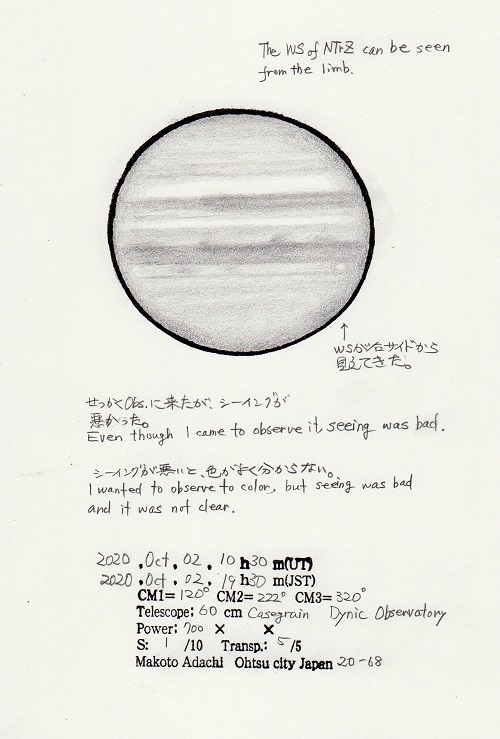 The WS of NTrZ can be seen
from the limb.
↑
WSが右サイドから
見えてきた。
せっかくObs.に来たが、シーイングが
悪かった。
Even though I came to observe it, seeing was bad.
シーイングが悪いと、色がよく分からない。
I wanted to observe to color, but seeing was bad
and it was not clear.
2020 . Oct . 02 . 10 h30 m(UT)
2020 . Oct . 02 . 19 h30 m(JST)
CM1= 120° CM2= 222° CM3= 320°
Telescope: 60 cm Casegrain Dynic Observatory
Power: 700 × ×
S: 1 /10 Transp.: 5 /5
Makoto Adachi Ohtsu city Japan 20-68